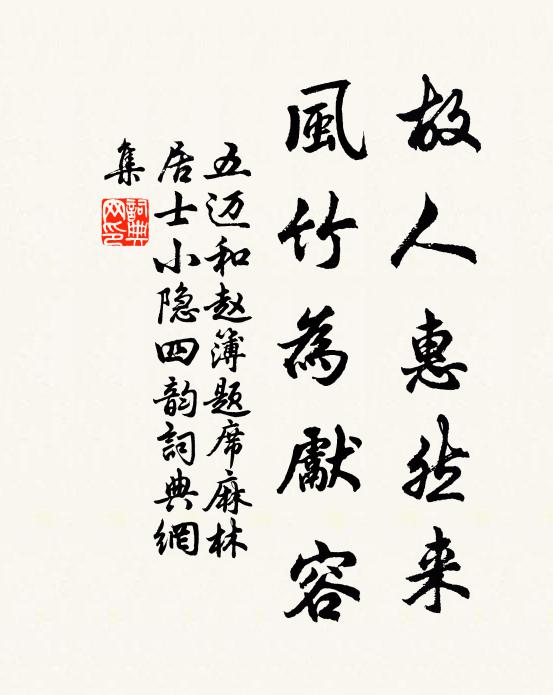 故人惠然来
風竹為獻容
五迈和赵簿题席麻林
居士小隐四韵詞典網
集
詞典
网印